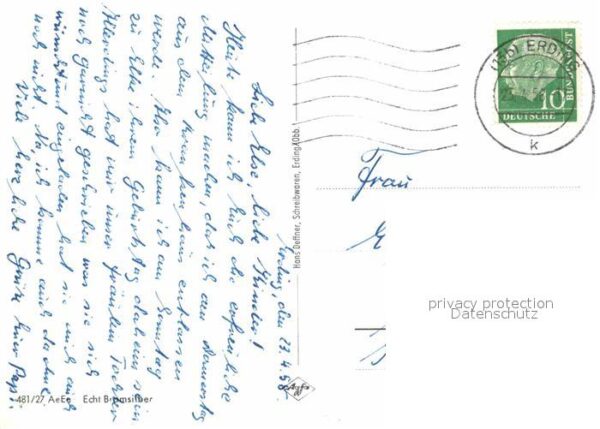 Erding, den 22.4.58.
Liebe Else, liebe Kinder!
Heute kann ich Euch die erfreuliche
Mitteilung machen, daß ich am Donnerstag
aus dem Krankenhaus entlassen
werde. Also kann ich am Sonntag
zu Elke ihrem Geburtstag daheim sein
Allerdings hat mir unser Fräulein Tochter
noch garnicht geschrieben was sie sich
wünscht und eingeladen hat sie mich auch
noch nicht. Na ich komme auch da ohne.
Viele herzliche Grüße Euer Papi.
481/27 AeEe Echt Bromsilber
Hans Deffner, Schreibwaren, Erding/Obb.
Agfa
(13b) ERDING
k
10
DEUTSCHE
BUNDESPOST
Frau
privacy protection
Datenschutz